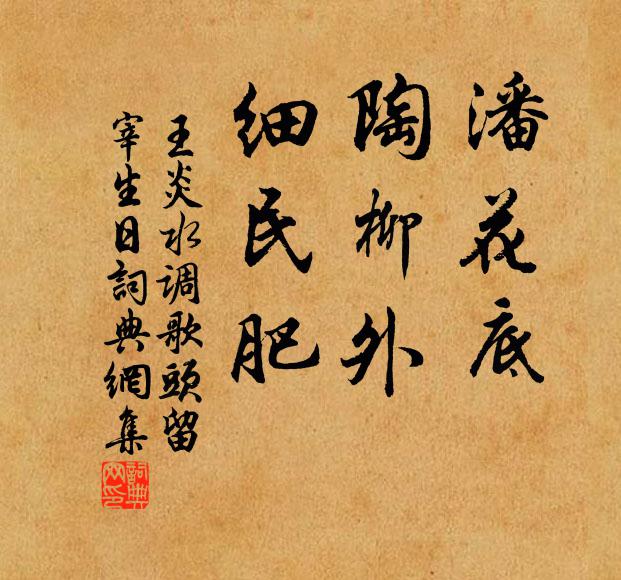 潘花底
陶柳外
细民肥
王炎水调歌头留
宰生日詞典網集
詞典网印